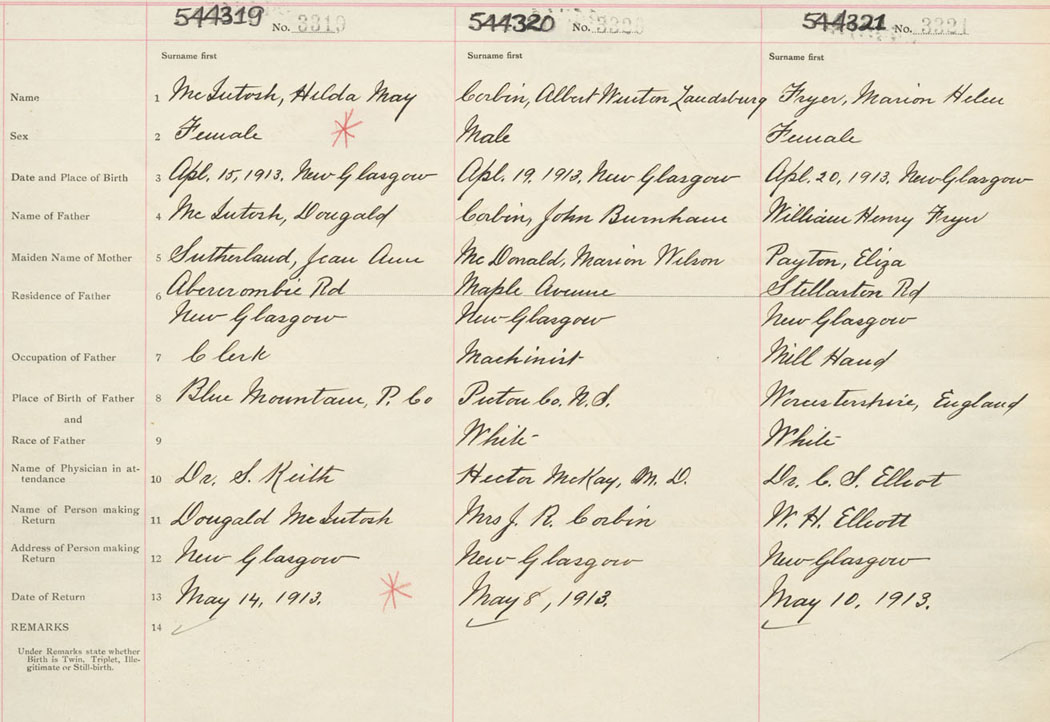 544319 No. 3319
544320 No. 3320
544321 No. 3321
Surname first
Surname first
Surname first
Name 1 McIntosh, Hilda May
Corbin, Albert Winton
Fryer, Marion Helen
Sex 2 Female
Male
Female
Date and Place of Birth 3 Apl. 15, 1913. New Glasgow
Apl. 19, 1913, New Glasgow
Apl. 20, 1913, New Glasgow
Name of Father 4 McIntosh, Dougald
Corbin, John Burnham
William Henry Fryer
Maiden Name of Mother 5 Sutherland, Jean Ann
McDonald, Marion Wilson
Payton, Eliza
Residence of Father 6 Abercrombie Rd
New Glasgow
Maple Avenue
New Glasgow
Stellarton Rd
New Glasgow
Occupation of Father 7 Clerk
Machinist
Mill Hand
Place of Birth of Father 8 Blue Mountain, P. Co
Pictou Co. N.S.
Worcestershire, England
and
Race of Father 9
White
White
Name of Physician in at-
tendance 10 Dr. S. Keith
Hector McKay, M.D.
Dr. C. S. Elliot
Name of Person making
Return 11 Dougald McIntosh
Mrs J. R. Corbin
W. H. Elliott
Address of Person making
Return 12 New Glasgow
New Glasgow
New Glasgow
Date of Return 13 May 14, 1913.
May 8, 1913.
May 10, 1913.
REMARKS 14
Under Remarks state whether
Birth is Twin, Triplet, Ille-
gitimate or Still-birth.